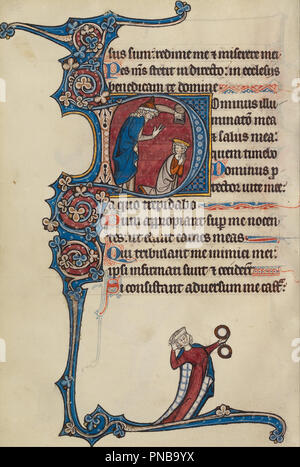 sus sum: redime me ⁊ miserere mei
Pes ms stetit in directo: in ecclesiis
benedicam te domine
Dominus illu
minatio mea
⁊ salus mea:
quem timebo
Dominus p
tector vite mee:
a quo trepidabo
Dum appropiant sup me nocen
tes: ut edant carnes meas
Qui tribulant me inimici mei:
ipsi infirmati sunt ⁊ cecider̄t
Si consistant adversum me cast
alamy
Image ID: PNB9YX
www.alamy.com